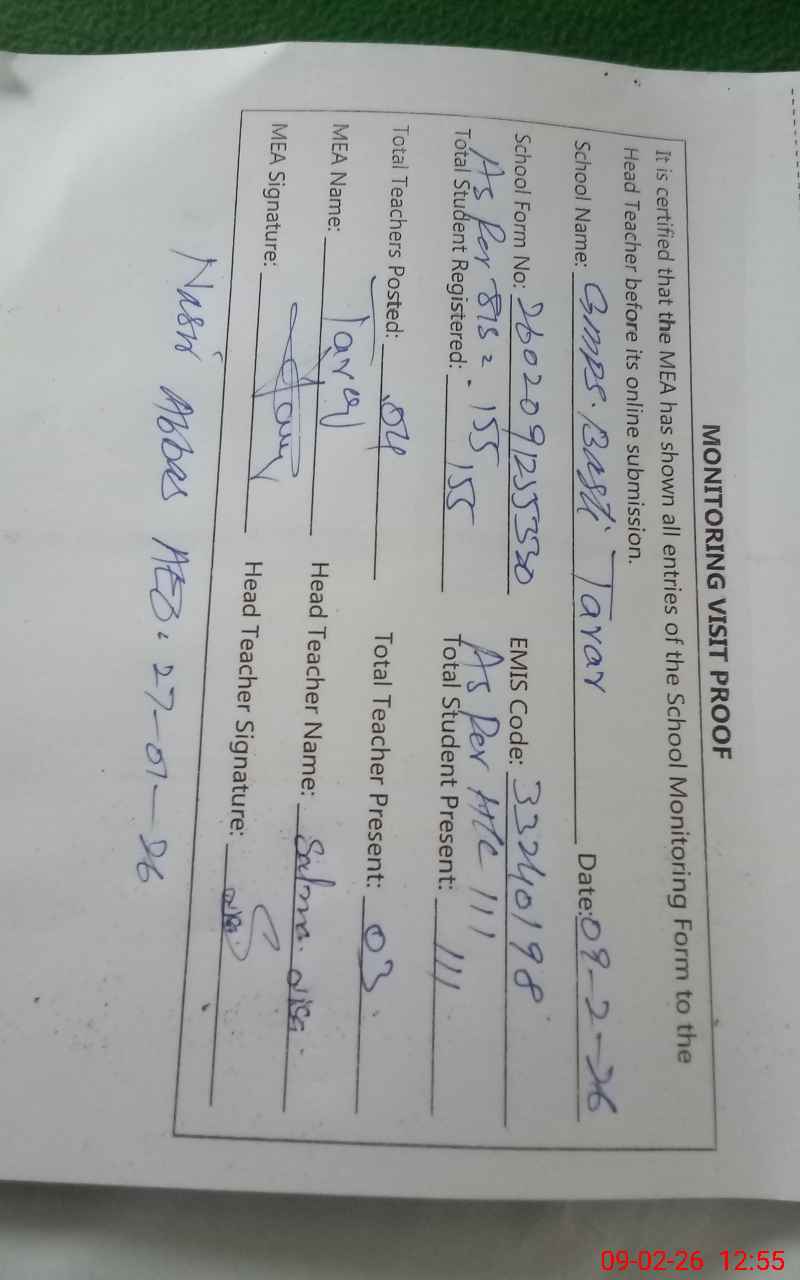 MONITORING VISIT PROOF
It is certified that the MEA has shown all entries of the School Monitoring Form to the
Head Teacher before its online submission.
School Name: GMPS. Basti Tarar Date: 09-2-26
School Form No: 260209125533 EMIS Code: 33240198
As Per SIS = 155 As Per HC 111
Total Student Registered: 155 Total Student Present: 111
Total Teachers Posted: 04 Total Teacher Present: 03
MEA Name: Tariq Head Teacher Name: Salma
MEA Signature: Head Teacher Signature:
Nasir Abbas AEO. 27-01-26
09-02-26 12:55